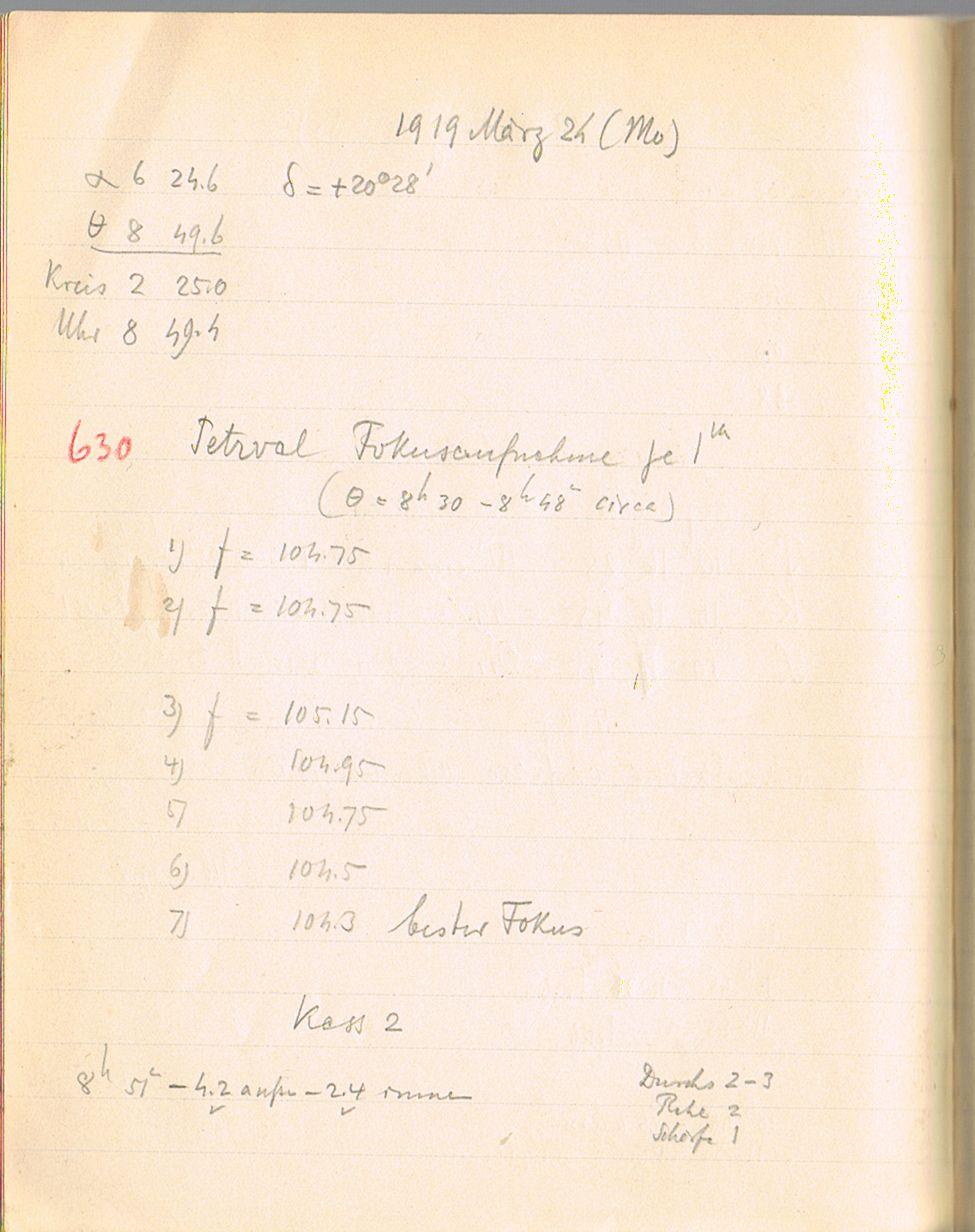 1919 März 24 (Mo)
α 6 24.6 δ = +20°28'
θ 8 49.6
Kreis 2 25.0
Uhr 8 49.4
630 Petzval Fokusaufnahme je 1ᵐ
(θ = 8ʰ30 – 8ʰ48ᵐ circa)
1) f = 104.75
2) f = 104.75
3) f = 105.15
4) 104.95
5) 104.75
6) 104.5
7) 104.3 bester Fokus
Kass 2
8ʰ 51ᵐ – 4.2 außen – 2.4 innen
Durchs 2–3
Ruhe 2
Schärfe 1